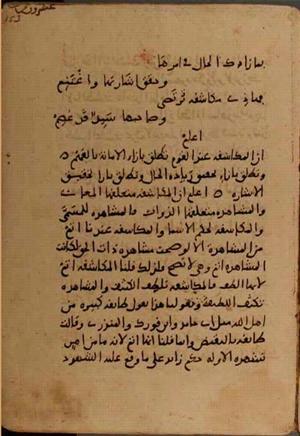 بازاء الحال
وحقق اشارتها
مكاشفه
وصاحبها
اعلم
ان المكاشفه عند القوم تطلق بازاء الامانة بالفهم
وتطلق بازاء تحقيق زيادة الحال وتطلق بازاء تحقيق
الاشاره اعلم ان المكاشفة متعلقها المعاني
والمشاهده متعلقها الذوات فالمشاهده للمسمى
والمكاشفه لحكم الاسما والمكاشفه عندنا اتم
من المشاهدة الا لو صحت مشاهدة ذات الحق لكانت
المشاهدة اتم وهي لا تصح فلذلك قلنا المكاشفة اتم
لانها الطف فالمكاشفه تلطف الكثيف والمشاهده
تكثف اللطيف وبقولنا هذا يقول طايفه كبيره من
اهل الله مثل ابي حامد وابن فورك والمنذري وقالت
طايفه بالنقيض وانما قلنا انها اتم لانه ما من امر
تشهده الا وله حكم زايد على ما وقع عليه الشهود